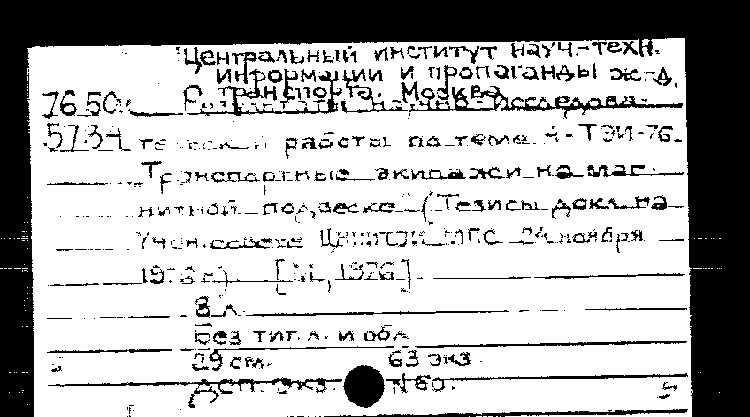 Центральный институт науч.-техн.
информации и пропаганды ж-д.
транспорта. Москва
76.50: Результаты научно-исследова-
5734 работы по теме А-ТЭИ-76.
Транспортные экипажи на маг-
нитной подвеске" (Тезисы докл. на
Учен. совете ЦНИИТЭИ МПС 24 ноября
1976 г.) [М., 1976].
8 л.
Без тит. л. и обл.
29 см. 63 экз.
ДСП. Экз. N 60.